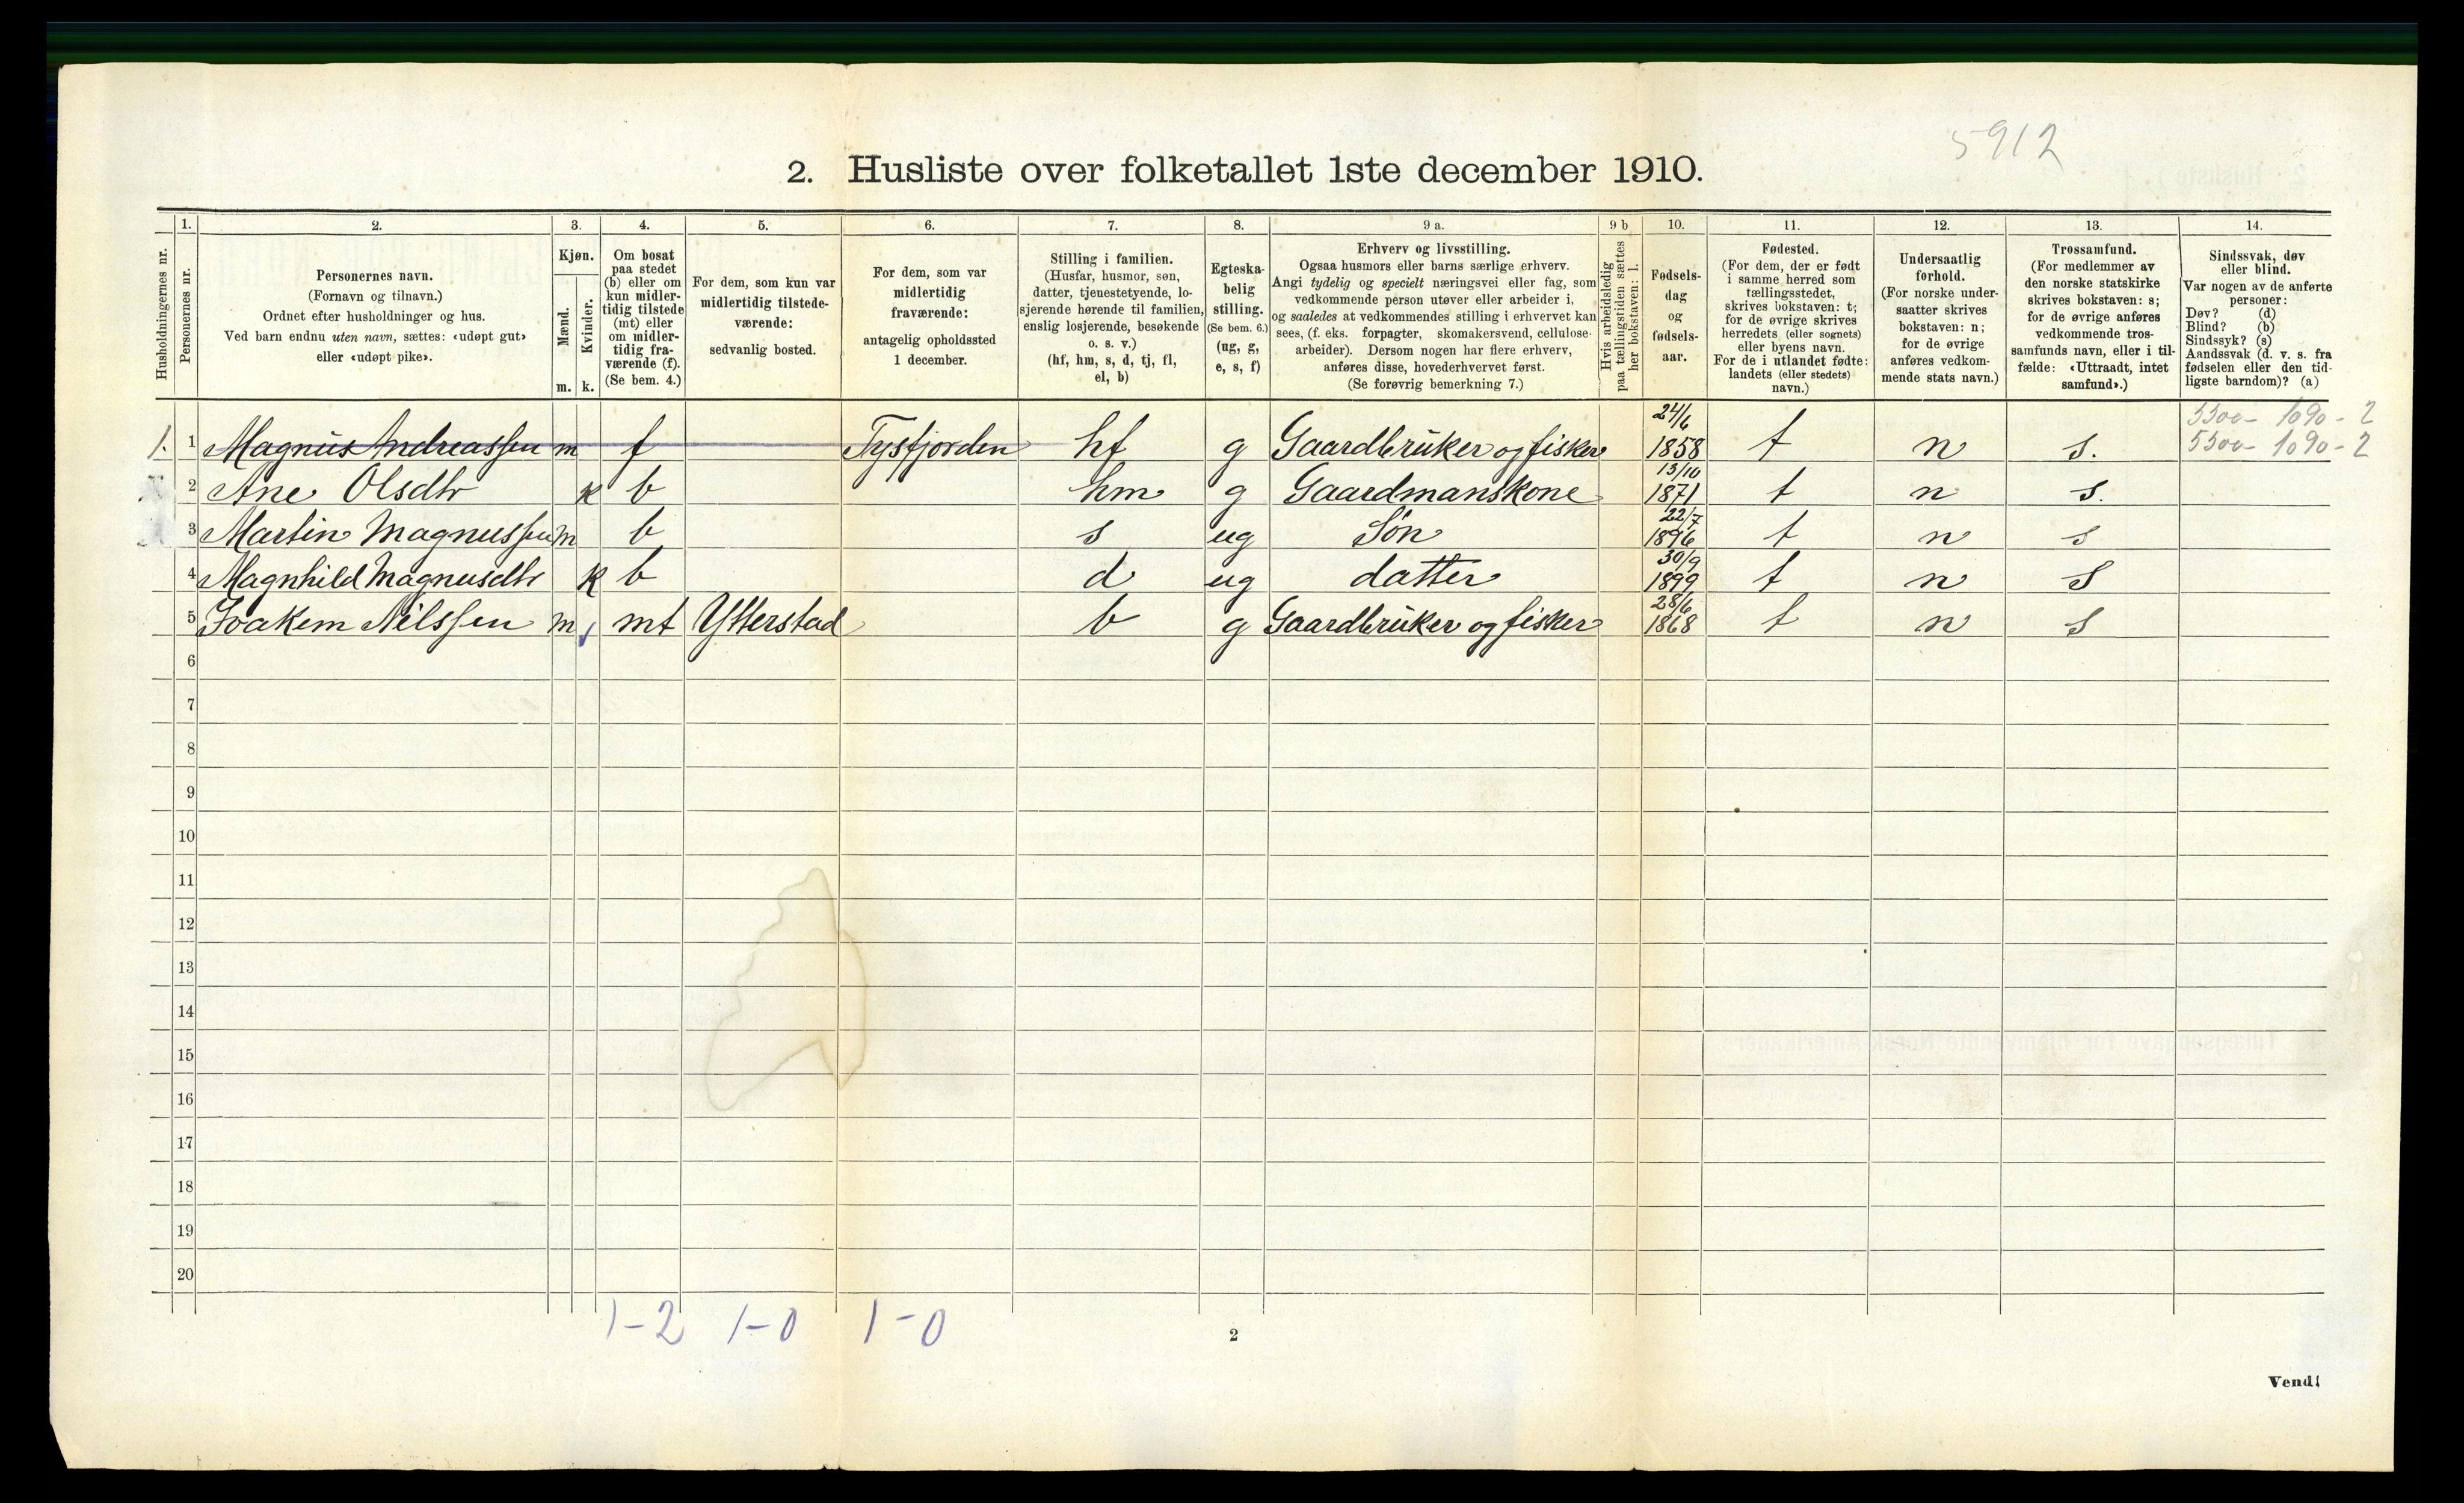 5912
2. Husliste over folketallet 1ste december 1910.
Husholdningernes nr.
1.
Personernes nr.
2.
Personernes navn.
(Fornavn og tilnavn.)
Ordnet efter husholdninger og hus.
Ved barn endnu uten navn, sættes: «udøpt gut»
eller «udøpt pike».
3.
Kjøn.
Mænd.
m.
Kvinder.
k.
4.
Om bosat
paa stedet
(b) eller om
kun midler-
tidig tilstede
(mt) eller
om midler-
tidig fra-
værende (f).
(Se bem. 4.)
5.
For dem, som kun var
midlertidig tilstede-
værende:
sedvanlig bosted.
6.
For dem, som var
midlertidig
fraværende:
antagelig opholdssted
1 december.
7.
Stilling i familien.
(Husfar, husmor, søn,
datter, tjenestetyende, lo-
sjerende hørende til familien,
enslig losjerende, besøkende
o. s. v.)
(hf, hm, s, d, tj, fl,
el, b)
8.
Egteska-
belig
stilling.
(Se bem. 6.)
(ug, g,
e, s, f)
9 a.
Erhverv og livsstilling.
Ogsaa husmors eller barns særlige erhverv.
Angi tydelig og specielt næringsvei eller fag, som
vedkommende person utøver eller arbeider i,
og saaledes at vedkommendes stilling i erhvervet kan
sees, (f. eks. forpagter, skomakersvend, cellulose-
arbeider). Dersom nogen har flere erhverv,
anføres disse, hovederhvervet først.
(Se forøvrig bemerkning 7.)
9 b
Hvis arbeidsledig
paa tællingstiden sættes
her bokstaven: l.
10.
Fødsels-
dag
og
fødsels-
aar.
11.
Fødested.
(For dem, der er født
i samme herred som
tællingsstedet,
skrives bokstaven: t;
for de øvrige skrives
herredets (eller sognets)
eller byens navn.
For de i utlandet fødte:
landets (eller stedets)
navn.)
12.
Undersaatlig
forhold.
(For norske under-
saatter skrives
bokstaven: n;
for de øvrige
anføres vedkom-
mende stats navn.)
13.
Trossamfund.
(For medlemmer av
den norske statskirke
skrives bokstaven: s;
for de øvrige anføres
vedkommende tros-
samfunds navn, eller i til-
fælde: «Uttraadt, intet
samfund».)
14.
Sindssvak, døv
eller blind.
Var nogen av de anførte
personer:
Døv? (d)
Blind? (b)
Sindssyk? (s)
Aandssvak (d. v. s. fra
fødselen eller den tid-
ligste barndom)? (a)
5500 - 1090 - 2
1. 1 Magnus Andreassen m f Tysfjorden hf g Gaardbruker og fisker 24/6 1858 t n s. 5500 - 1090 - 2
2 Ane Olsdtr k b hm g Gaardmanskone 13/10 1871 t n s.
3 Martin Magnussen m b s ug Søn 22/7 1896 t n s
4 Magnhild Magnusdtr k b d ug datter 30/9 1899 t n s
5 Joakem Nilssen m mt Ytterstad b g Gaardbruker og fisker 28/6 1868 t n s
6
7
8
9
10
11
12
13
14
15
16
17
18
19
20
1-2 1-0 1-0
2
Vend!